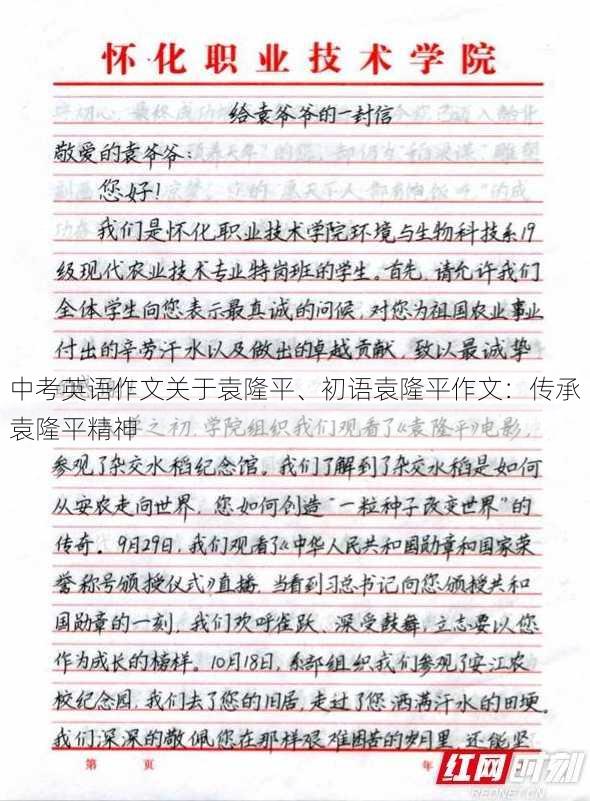 怀化职业技术学院
给袁爷爷的一封信
敬爱的袁爷爷：
您好！
我们是怀化职业技术学院环境与生物科技系19
级现代农业技术专业特岗班的学生。首先，请允许我们
全体学生向您表示最真诚的问候，对您为祖国农业事业
付出的辛劳汗水以及做出的卓越贡献，致以最诚挚
中考英语作文关于袁隆平、初语袁隆平作文：传承
袁隆平精神
之初，学院组织我们观看了《袁隆平》电影，
参观了杂交水稻纪念馆。我们了解到了杂交水稻是如何
从安农走向世界，您如何创造“一粒种子改变世界”的
传奇。9月29日，我们观看了《中华人民共和国勋章和国家荣
誉称号颁授仪式》直播，当看到习总书记向您颁授共和
国勋章的一刻，我们欢呼雀跃、深受鼓舞，立志要以您
作为成长的榜样。10月18日，系部组织我们参观了安江农
校纪念园，我们去了您的旧居，走过了您洒满汗水的田埂。
我们深深的敬佩您在那样艰难困苦的岁月里，还能坚
第 页 年
红网时刻
REDNET.CN